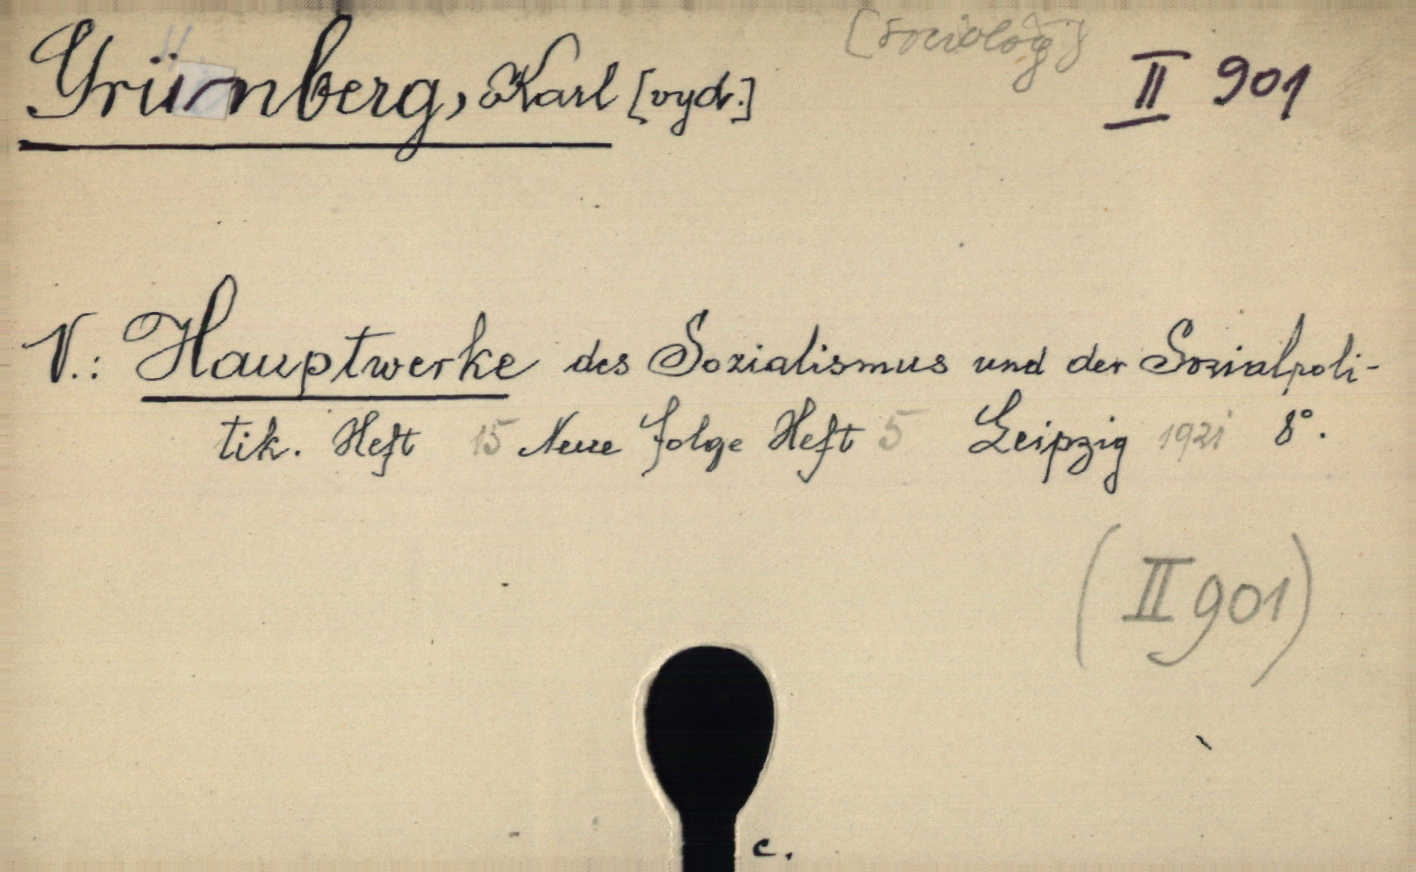 Grünberg, Karl [vyd.] [sociolog] II 901
V.: Hauptwerke des Sozialismus und der Sozialpoli-
tik. Heft 15 Neue Folge Heft 5 Leipzig 1921 8°.
(II 901)
c.